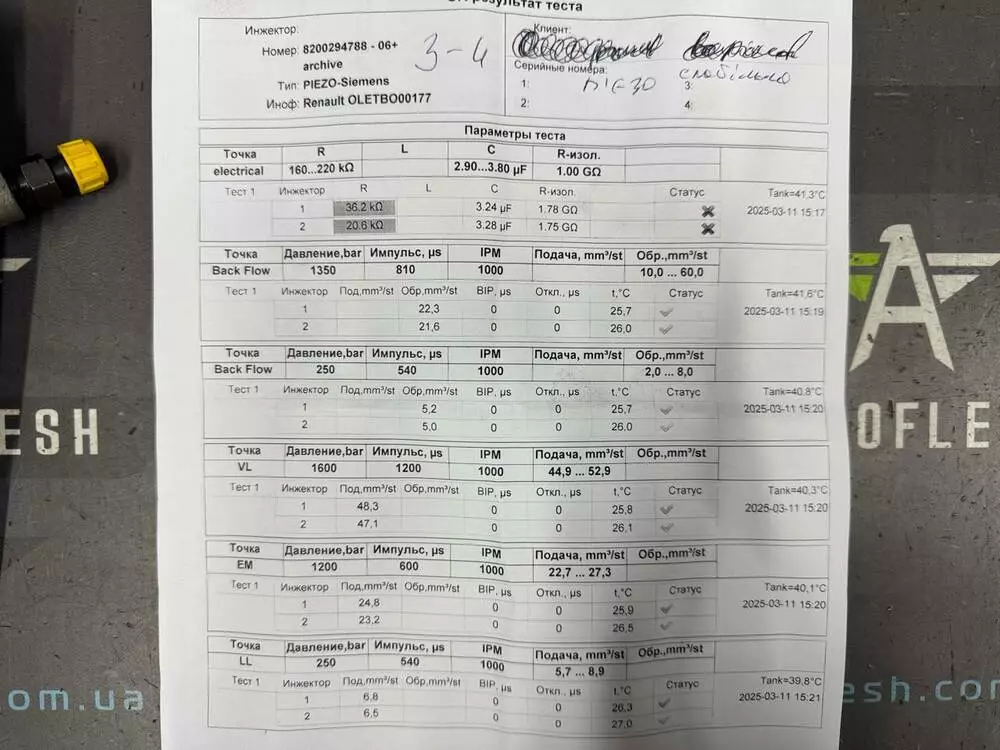 результат теста
Инжектор:
Номер: 8200294788 - 06+
archive
Тип: PIEZO-Siemens
Иноф: Renault OLETBO00177
3-4
Клиент:
Серийные номера:
1: 3:
2: 4:
Параметры теста
Точка R L C R-изол.
electrical 160...220 kΩ 2.90...3.80 µF 1.00 GΩ
Тест 1 Инжектор R L C R-изол. Статус Tank=41,3°C
1 36.2 kΩ 3.24 µF 1.78 GΩ 2025-03-11 15:17
2 20.6 kΩ 3.28 µF 1.75 GΩ
Точка Давление,bar Импульс, µs IPM Подача, mm³/st Обр.,mm³/st
Back Flow 1350 810 1000 10,0 ... 60,0
Тест 1 Инжектор Под,mm³/st Обр,mm³/st BIP, µs Откл., µs t,°C Статус Tank=41,6°C
1 22,3 0 0 25,7 2025-03-11 15:19
2 21,6 0 0 26,0
Точка Давление,bar Импульс, µs IPM Подача, mm³/st Обр.,mm³/st
Back Flow 250 540 1000 2,0 ... 8,0
Тест 1 Инжектор Под,mm³/st Обр,mm³/st BIP, µs Откл., µs t,°C Статус Tank=40,8°C
1 5,2 0 0 25,7 2025-03-11 15:20
2 5,0 0 0 26,0
Точка Давление,bar Импульс, µs IPM Подача, mm³/st Обр.,mm³/st
VL 1600 1200 1000 44,9 ... 52,9
Тест 1 Инжектор Под,mm³/st Обр,mm³/st BIP, µs Откл., µs t,°C Статус Tank=40,3°C
1 48,3 0 0 25,8 2025-03-11 15:20
2 47,1 0 0 26,1
Точка Давление,bar Импульс, µs IPM Подача, mm³/st Обр.,mm³/st
EM 1200 600 1000 22,7 ... 27,3
Тест 1 Инжектор Под,mm³/st Обр,mm³/st BIP, µs Откл., µs t,°C Статус Tank=40,1°C
1 24,8 0 0 25,9 2025-03-11 15:20
2 23,2 0 0 26,5
Точка Давление,bar Импульс, µs IPM Подача, mm³/st Обр.,mm³/st
LL 250 540 1000 5,7 ... 8,9
Тест 1 Инжектор Под,mm³/st Обр,mm³/st BIP, µs Откл., µs t,°C Статус Tank=39,8°C
1 6,8 0 0 26,3 2025-03-11 15:21
2 6,5 0 0 27,0
ESH
OFLE
om.ua
esh.con